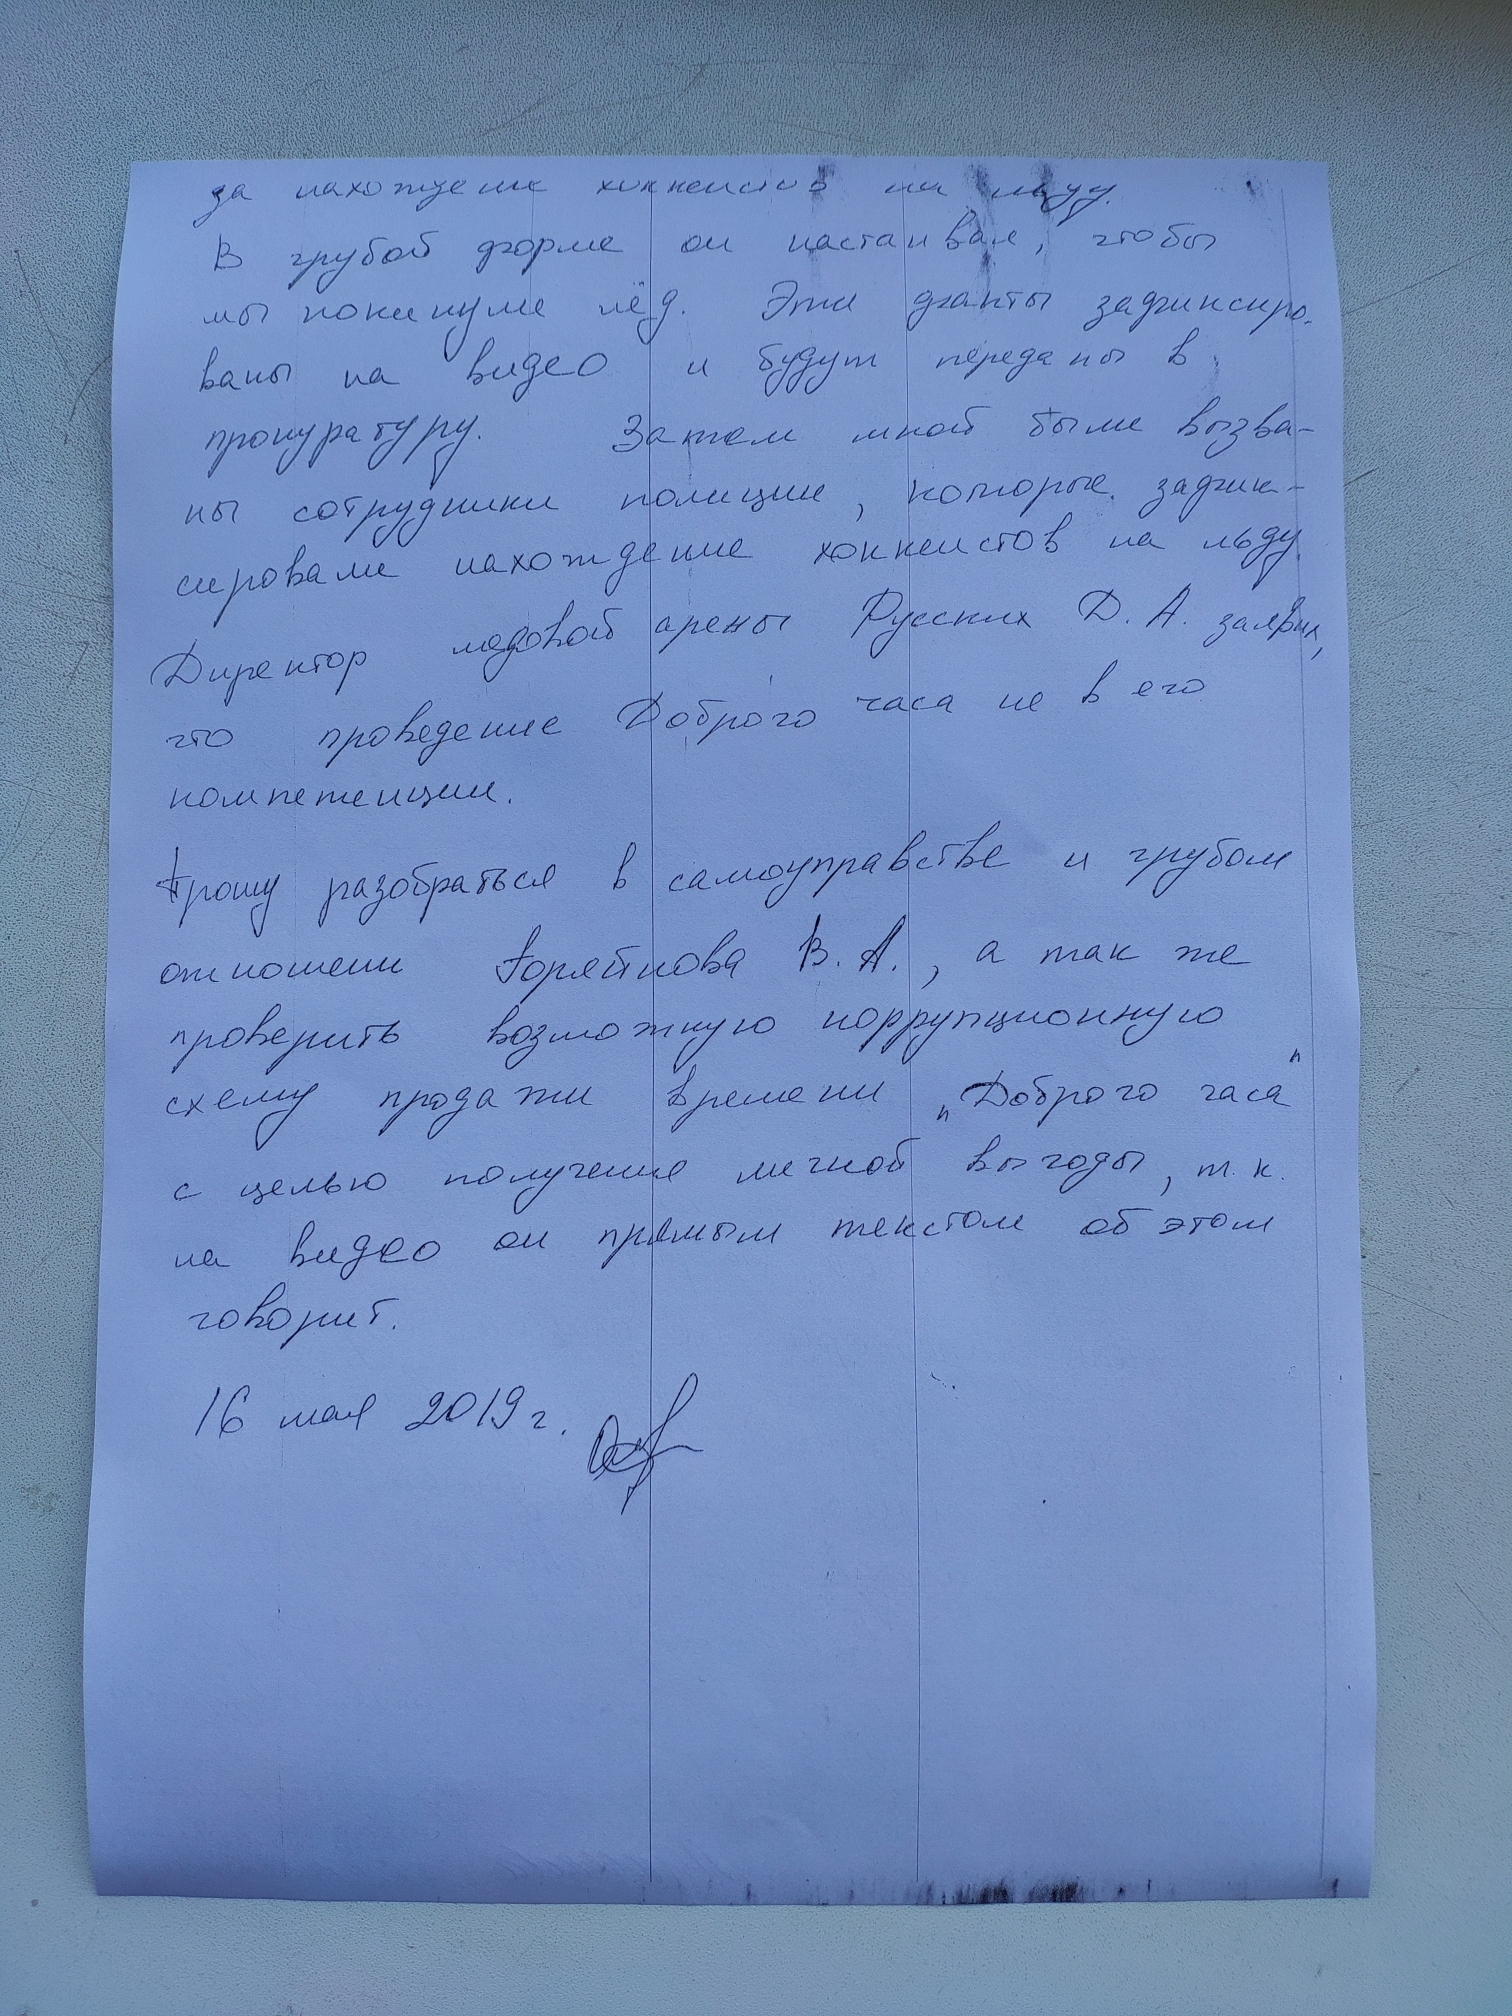 за нахождение хоккеистов на льду.
В грубой форме он настаивал, чтобы
мы покинули лёд. Эти факты зафиксиро-
ваны на видео и будут переданы в
прокуратуру. Затем мной были вызва-
ны сотрудники полиции, которые зафик-
сировали нахождение хоккеистов на льду.
Директор ледовой арены Русских Д. А. заявил,
что проведение Доброго часа не в его
компетенции.
Прошу разобраться в самоуправстве и грубом
отношени В. А., а так же
проверить возможную коррупционную
схему продажи времени "Доброго часа"
с целью получения личной выгоды, т.к.
на видео он прямым текстом об этом
говорит.
16 мая 2019 г.